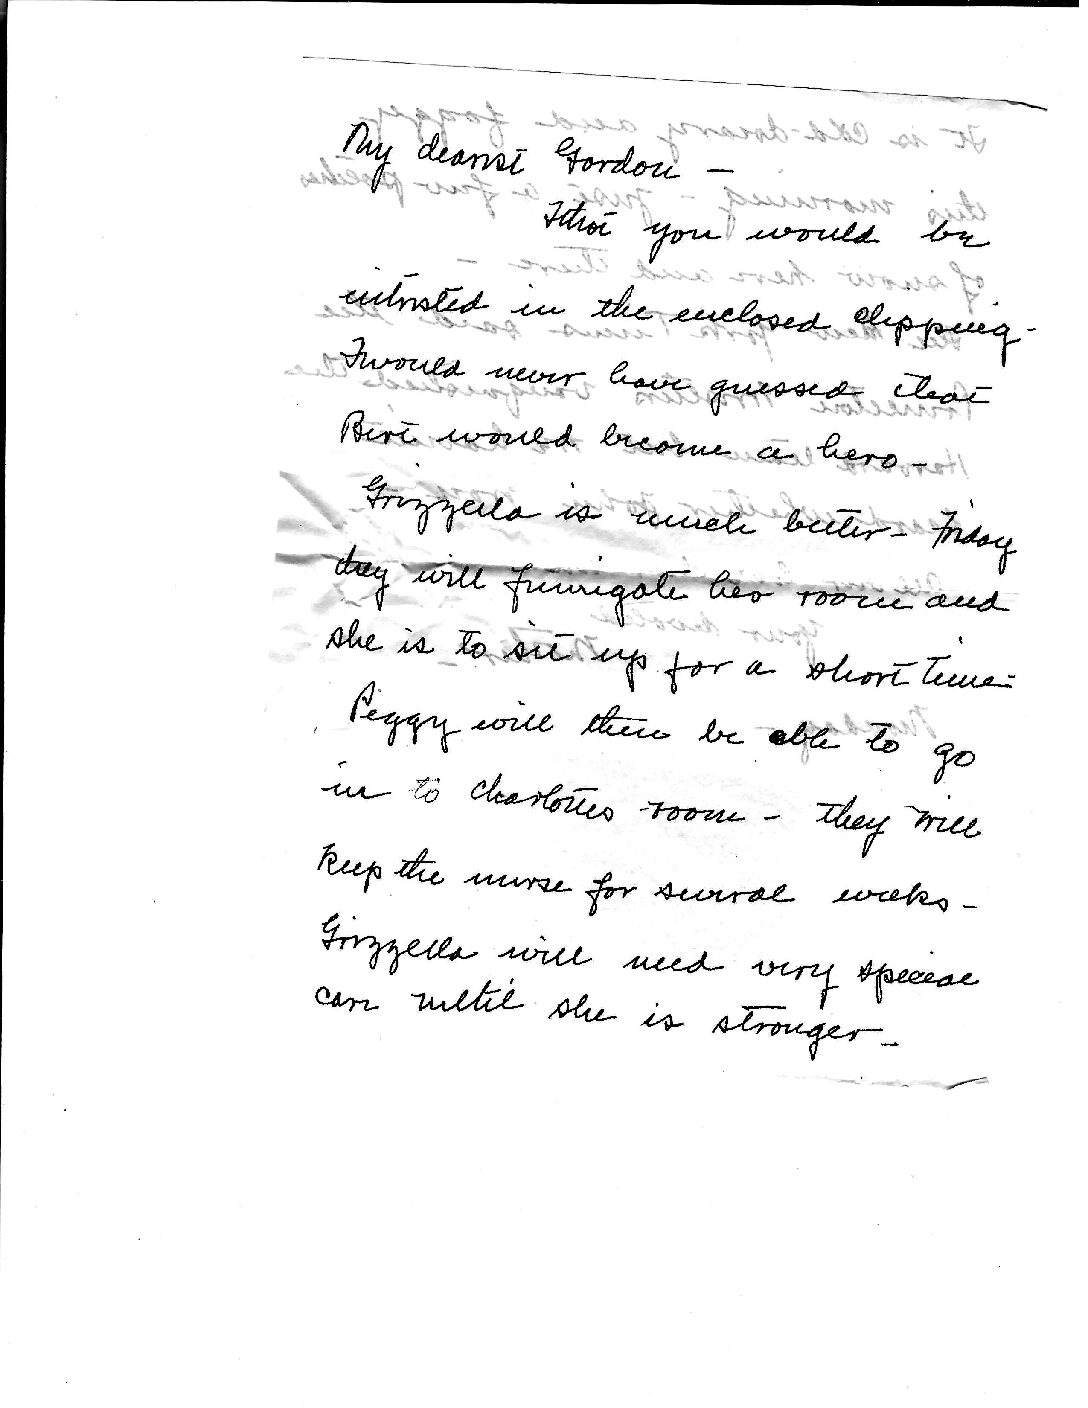 My dearest Gordon –
I thot you would be
intersted in the enclosed clipping –
I would never have guessed that
Bert would become a hero –
Grizzella is much better – Friday
they will fumigate her room and
she is to sit up for a short time –
Peggy will then be able to go
in to Charlottes room – they will
keep the nurse for several weeks –
Grizzella will need very special
care until she is stronger –